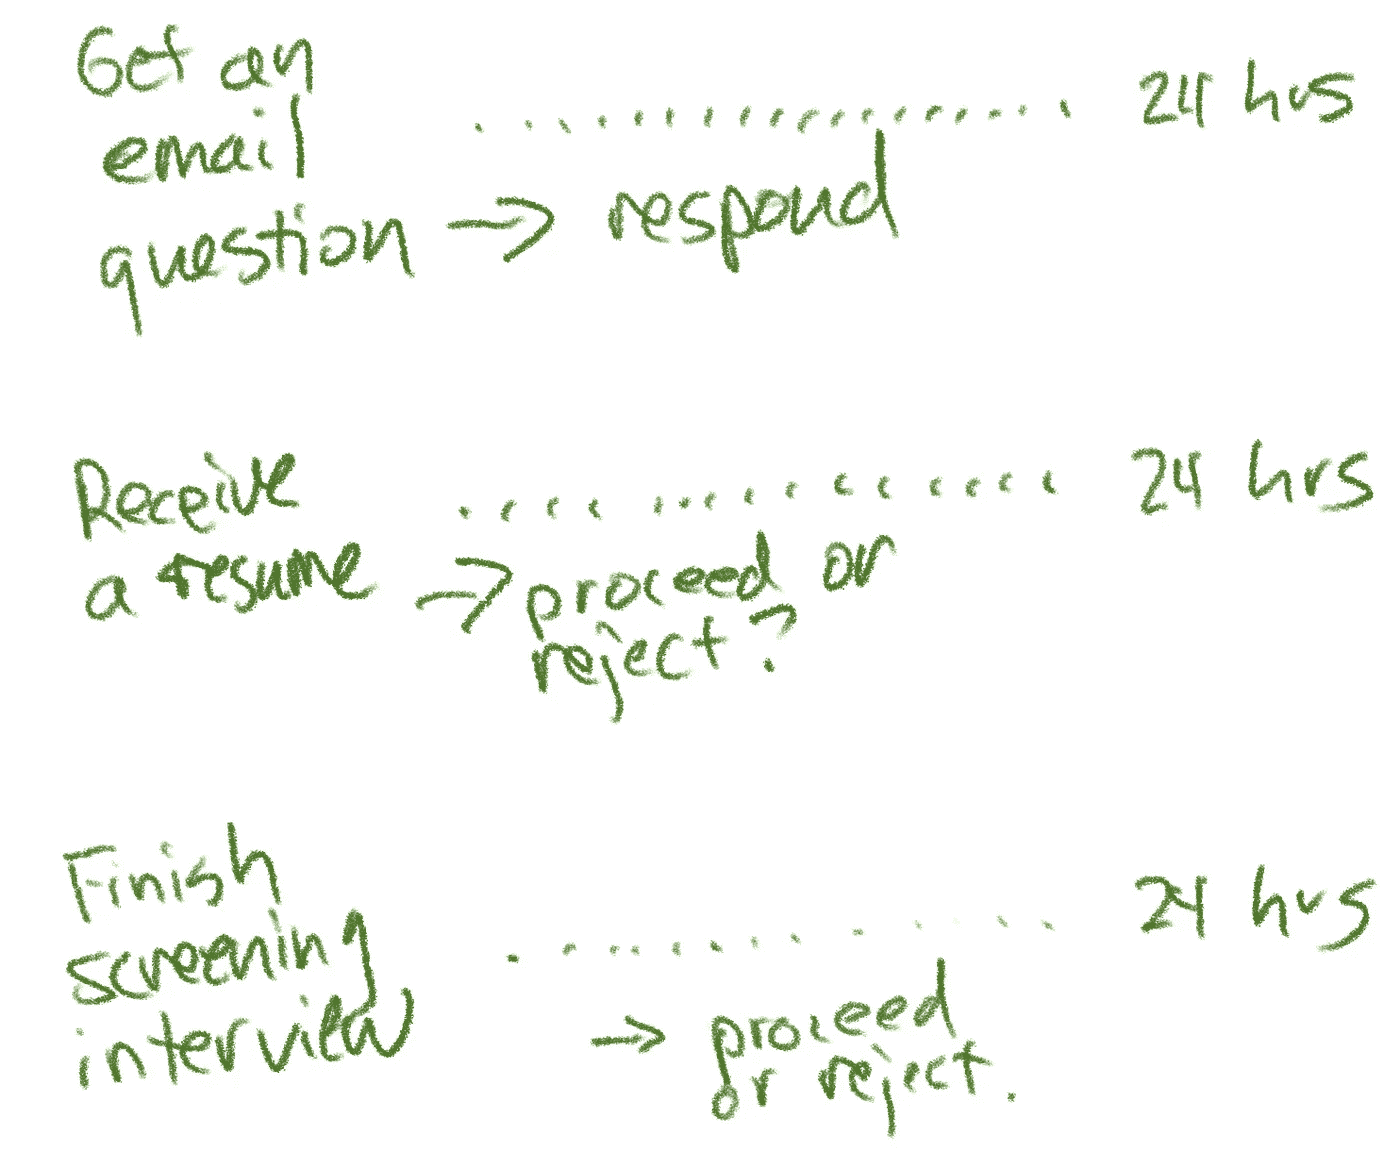 Get an
email
question → respond
.................. 24 hrs
Receive
a resume → proceed or
reject?
............... 24 hrs
Finish
screening
interview → proceed
or reject.
.............. 24 hrs